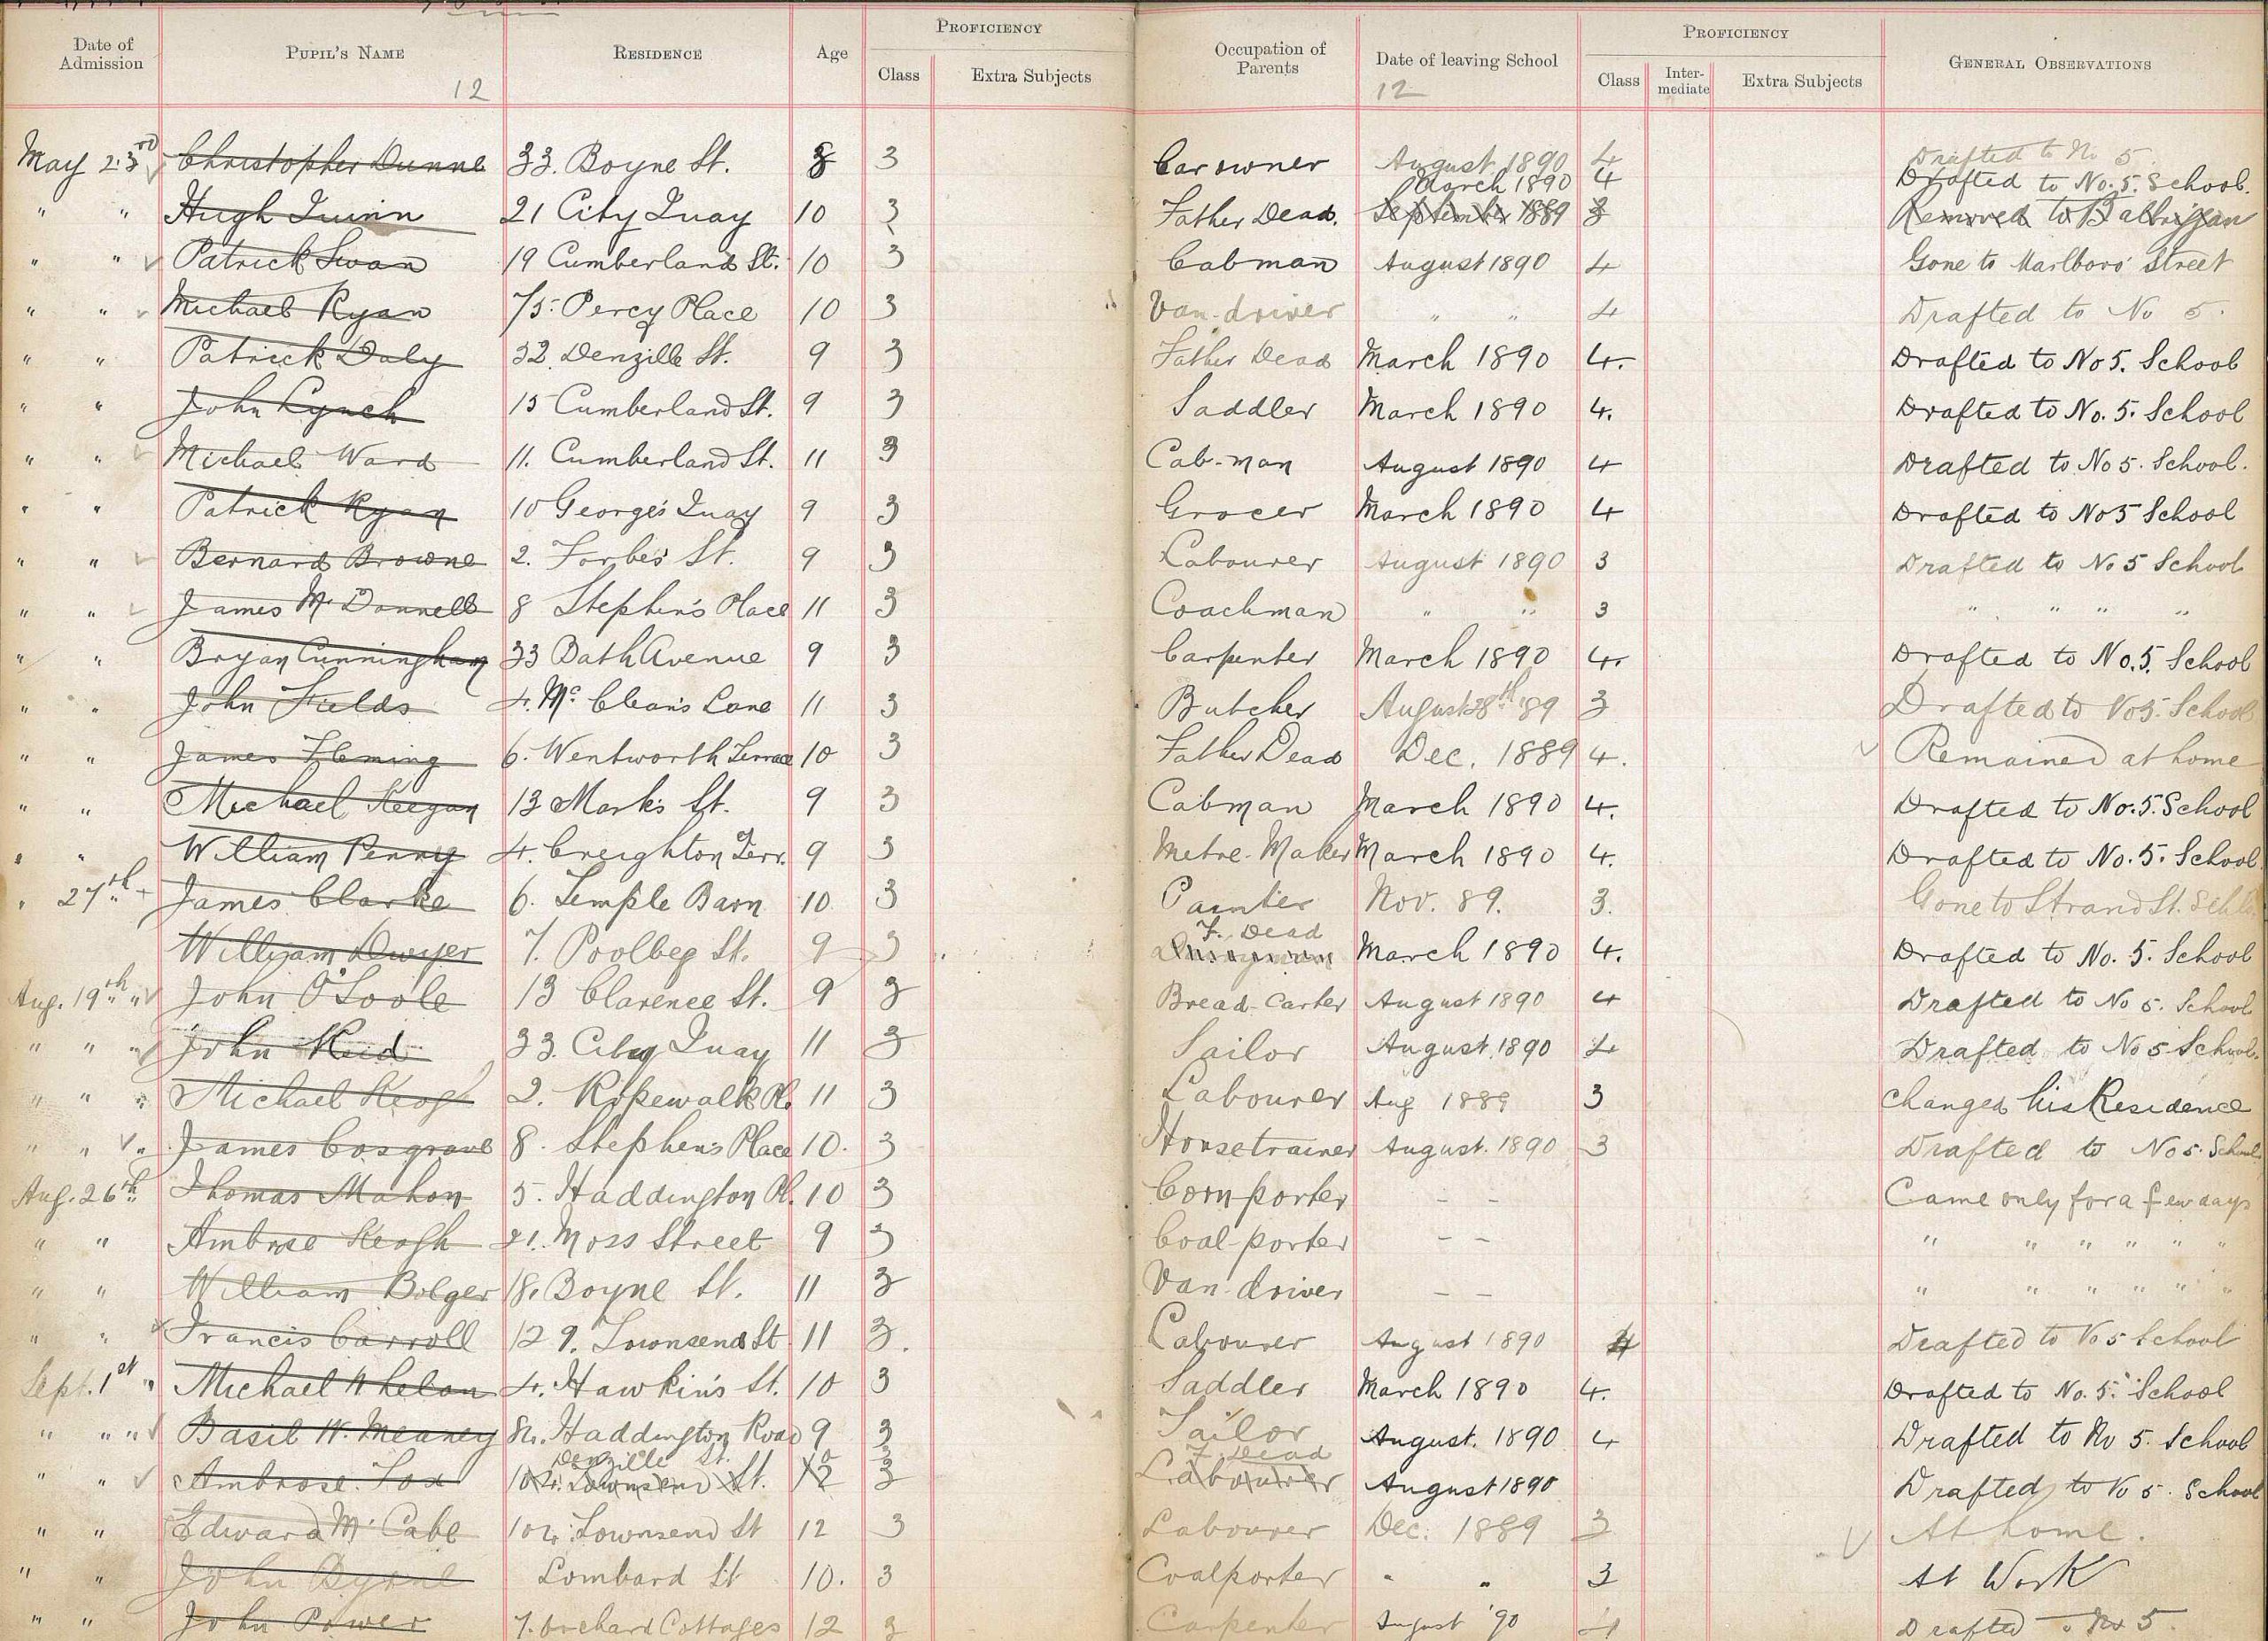 Date of Admission PUPIL'S NAME RESIDENCE Age PROFICIENCY Class Extra Subjects Occupation of Parents Date of leaving School PROFICIENCY Class Inter-mediate Extra Subjects GENERAL OBSERVATIONS
12 12
May 23rd Christopher Dunne 33. Boyne St. 8 3 Car owner August 1890 4 Drafted to No 5.
March 1890 4 Drafted to No. 5. School.
" " Hugh Quinn 21 City Quay 10 3 Father Dead. September 1889 3 Removed to Balbriggan
" " Patrick Swan 19 Cumberland St. 10 3 Cabman August 1890 4 Gone to Marlboro' Street
" " Michael Ryan 75. Percy Place 10 3 Van-driver " " 4 Drafted to No 5.
" " Patrick Daly 32. Denzille St. 9 3 Father Dead March 1890 4. Drafted to No 5. School
" " John Lynch 15 Cumberland St. 9 3 Saddler March 1890 4. Drafted to No. 5. School
" " Michael Ward 11. Cumberland St. 11 3 Cab-man August 1890 4 Drafted to No 5. School.
" " Patrick Ryan 10 George's Quay 9 3 Grocer March 1890 4 Drafted to No 5 School
" " Bernard Browne 2. Forbes St. 9 3 Labourer August 1890 3 Drafted to No 5 School
" " James McDonnell 8 Stephen's Place 11 3 Coachman " " 3 " " " "
" " Bryan Cunningham 33 Bath Avenue 9 3 Carpenter March 1890 4. Drafted to No. 5. School
" " John Fields 4. McClean's Lane 11 3 Butcher August 28th '89 3 Drafted to No 5. School
" " James Fleming 6. Wentworth Terrace 10 3 Father Dead Dec. 1889 4. Remained at home
" " Michael Keegan 13 Mark's St. 9 3 Cabman March 1890 4. Drafted to No. 5. School
" " William Penny 4. Creighton Terr. 9 3 Metre-Maker March 1890 4. Drafted to No. 5. School
" 27th James Clarke 6. Temple Barn 10 3 Painter Nov. 89. 3. Gone to Strand St. Schls
F. Dead
William Dwyer 7. Poolbeg St. 9 3 March 1890 4. Drafted to No. 5. School
Aug. 19th " John O'Toole 13 Clarence St. 9 3 Bread-Carter August 1890 4 Drafted to No 5. School
" " " John Reid 33. City Quay 11 3 Sailor August 1890 4 Drafted to No 5 School.
" " " Michael Keogh 2. Ropewalk Pl. 11 3 Labourer Aug 1889 3 Changed his Residence
" " " James Cosgrave 8. Stephen's Place 10. 3 Horsetrainer August. 1890 3 Drafted to No 5. School
Aug. 26th Thomas Mahon 5. Haddington Pl. 10 3 Corn porter - - Came only for a few days
" " Ambrose Keogh 21. Moss Street 9 3 Coal-porter - - " " " " " "
" " William Bolger 18. Boyne St. 11 3 Van-driver - - " " " " " "
" " Francis Carroll 129. Townsend St 11 3. Labourer August 1890 4 Drafted to No 5 School
Sept. 1st " Michael Whelan 4. Hawkin's St. 10 3 Saddler March 1890 4. Drafted to No. 5. School
" " " Basil W. Meaney 82. Haddington Road 9 3 Tailor August. 1890 4 Drafted to No 5. School
Denzille St. F. Dead
" " Ambrose Fox 104. Townsend St. 12 3 Labourer August 1890 Drafted to No 5. School
" " Edward McCabe 104. Townsend St 12 3 Labourer Dec. 1889 3 At home.
" " John Byrne Lombard St 10. 3 Coalporter " " 3 At Work
" " John Power 7. Orchard Cottages 12 3 Carpenter August '90 4 Drafted " No 5.